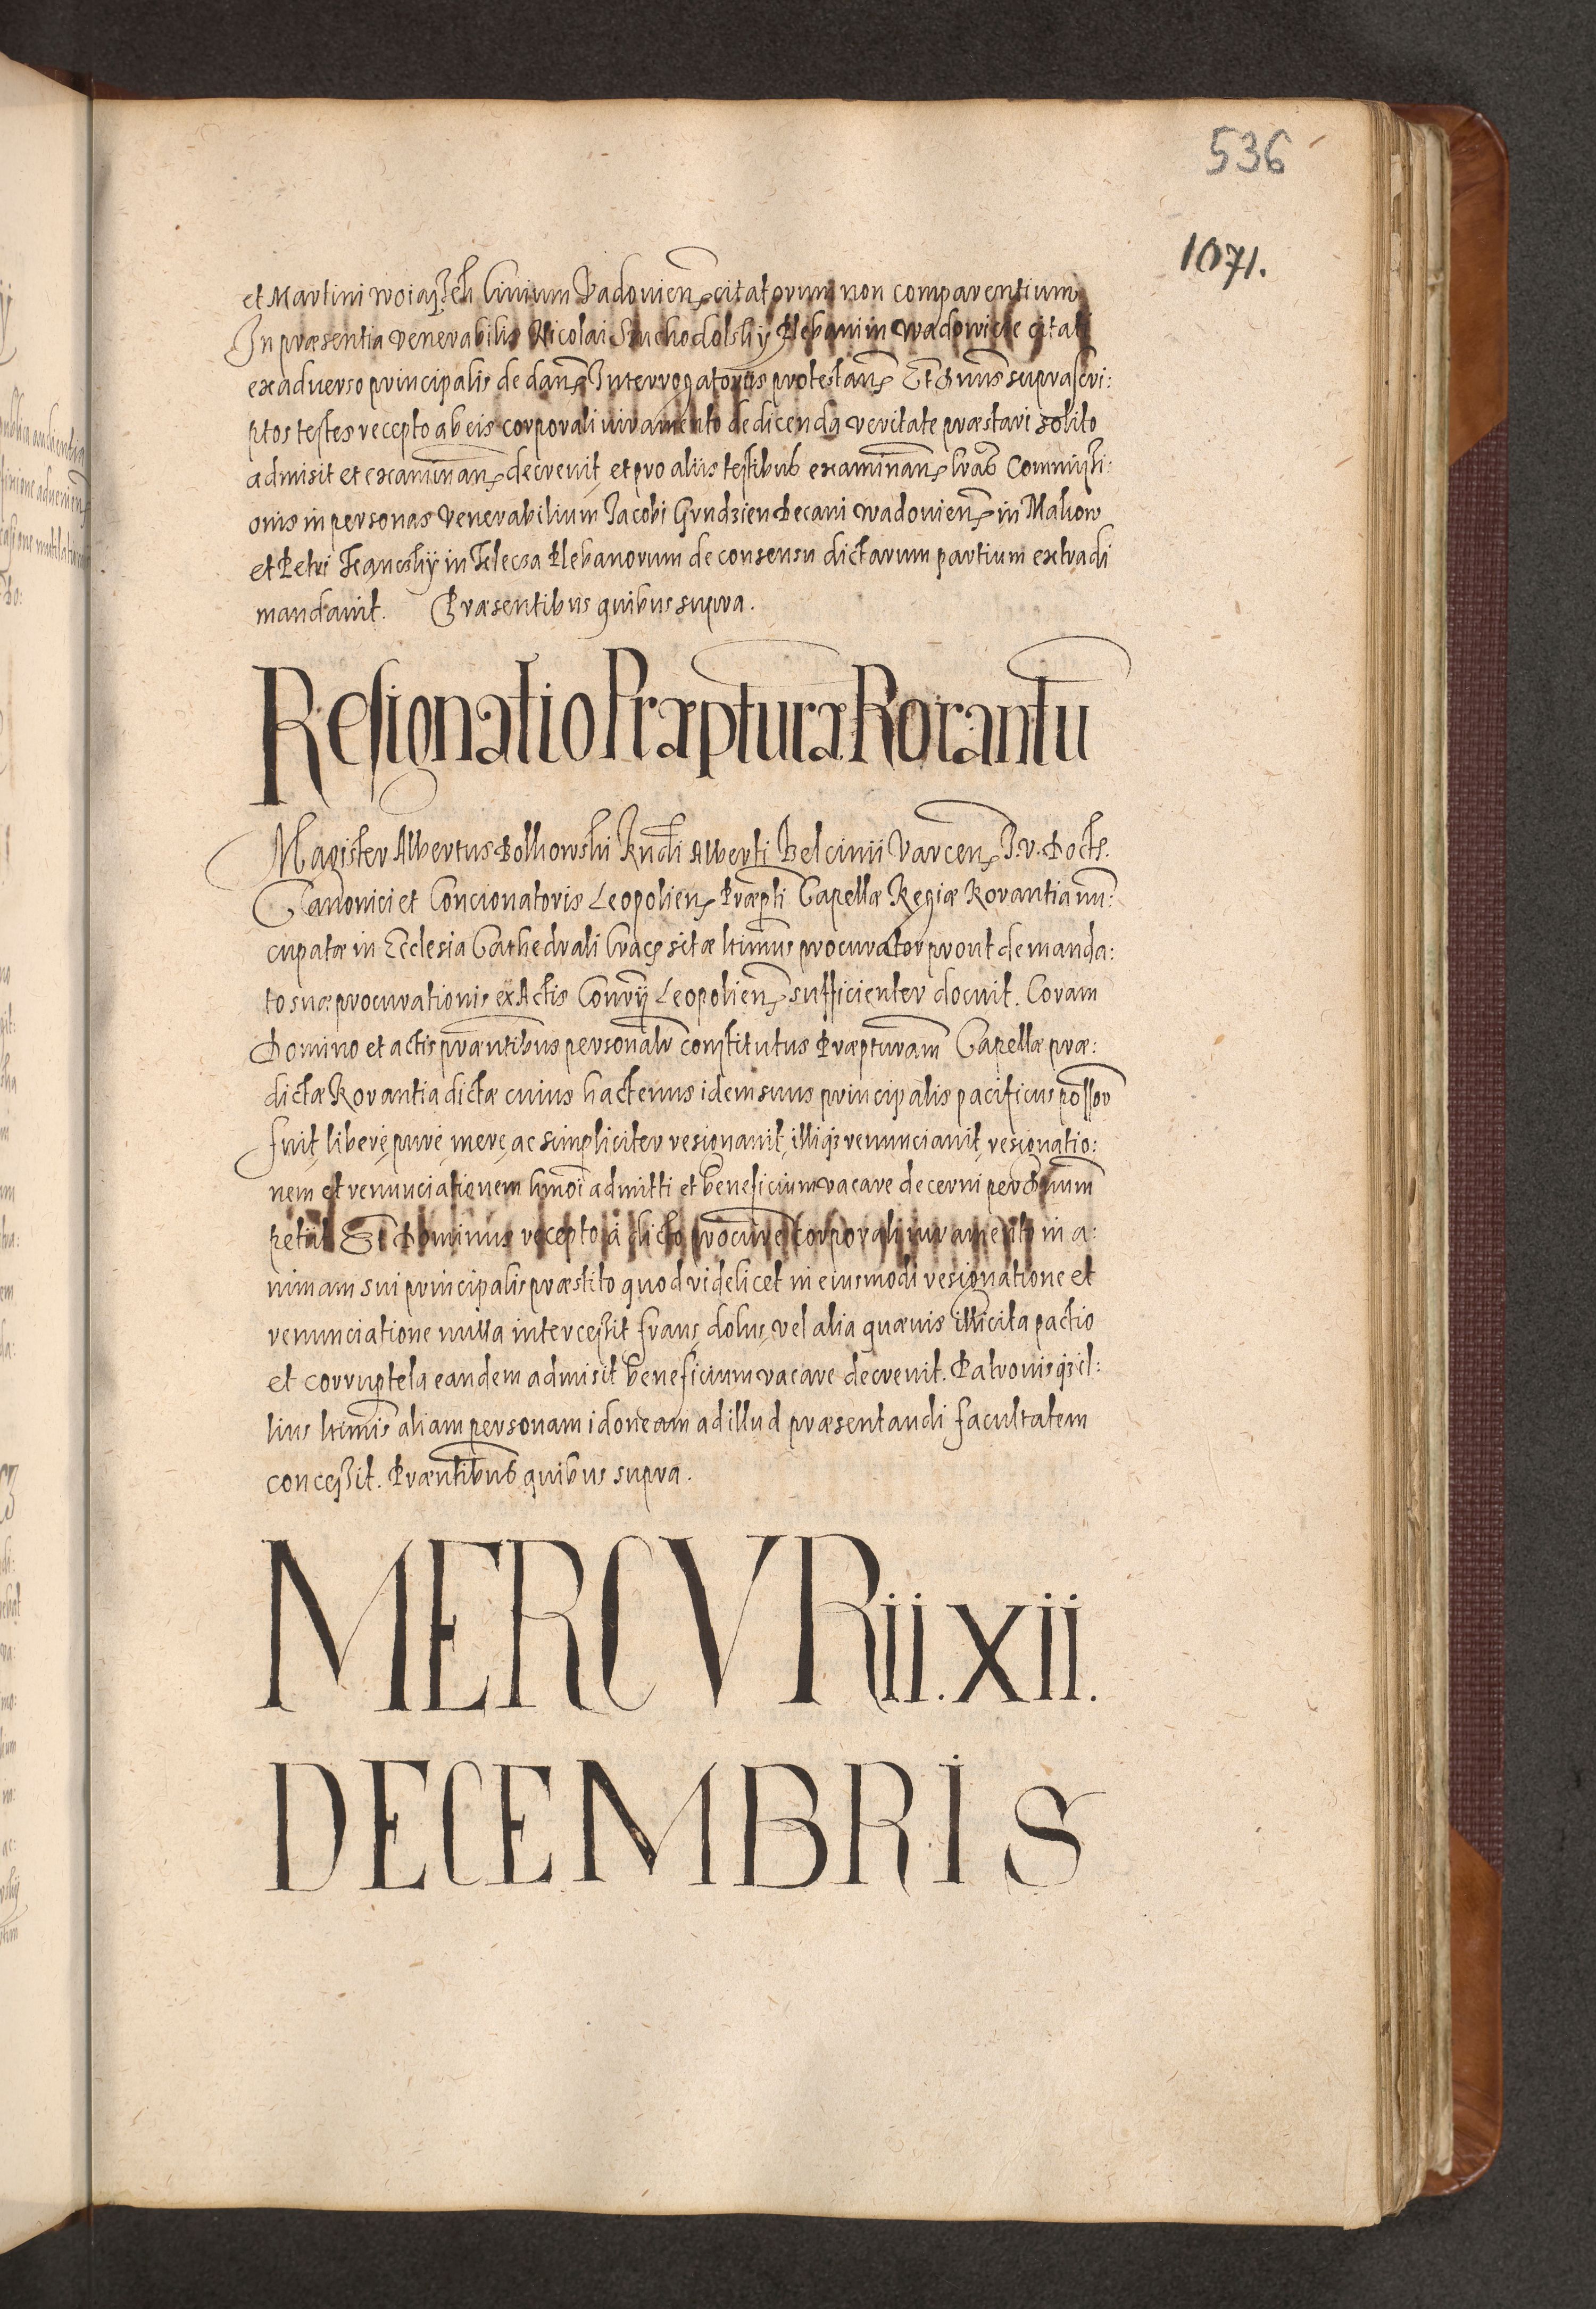 536
1071.
et Martini woiaißek Civium Vadovien citatorum non comparentium
In præsentia venerabilis Nicolai Suchodolsky Plebani in Wadowicze citati
ex adverso principalis de dan Interrogatoriis protestan Et Dnus suprascri:
ptos testes recepto ab eis corporali iuramento de dicenda veritate præstari solito
admisit et examinan decrevit, et pro aliis testibus examinan lras Commißi:
onis in personas Venerabilium Jacobi Grudzien Decani wadovien in Makow
et Petri in Plebanorum de consensu dictarum partium extradi
mandavit. Præsentibus quibus supra.
Resignatio Præpturæ Rorantu
Magister Albertus Bolkowski Rndi Alberti Belcinii Varcen J. v. Doctr.
Canonici et Concionatoris Leopolien Præpti Capellæ Regiæ Rorantia nu:
cupatæ in Ecclesia Cathedrali Crac sitæ ltimus procurator prout de manda:
to suæ procurationis ex Actis Consry Leopolien sufficienter docuit. Coram
Domino et actis præntibus personalr constitutus Præpturam Capellæ præ:
dictæ Rorantia dictæ cuius hactenus idem suus principalis pacificus possor
fuit, libere, pure, mere, ac simpliciter resignavit, illiq3 renunciavit, resignatio:
nem et renunciationem hmoi admitti et beneficium vacare decerni per Dnum
petiit Et Dominus recepto à dicto procure corporali iuramento in a:
nimam sui principalis præstito quod videlicet in eiusmodi resignatione et
renunciatione nulla interceßit fraus, dolus, vel alia quævis illicita pactio
et corruptela eandem admisit beneficium vacare decrevit. Patronisq3 il:
lius ltimis aliam personam idoneam ad illud præsentandi facultatem
conceßit. Præntibus quibus supra.
MERCVRii. xii.
DECEMBRIS